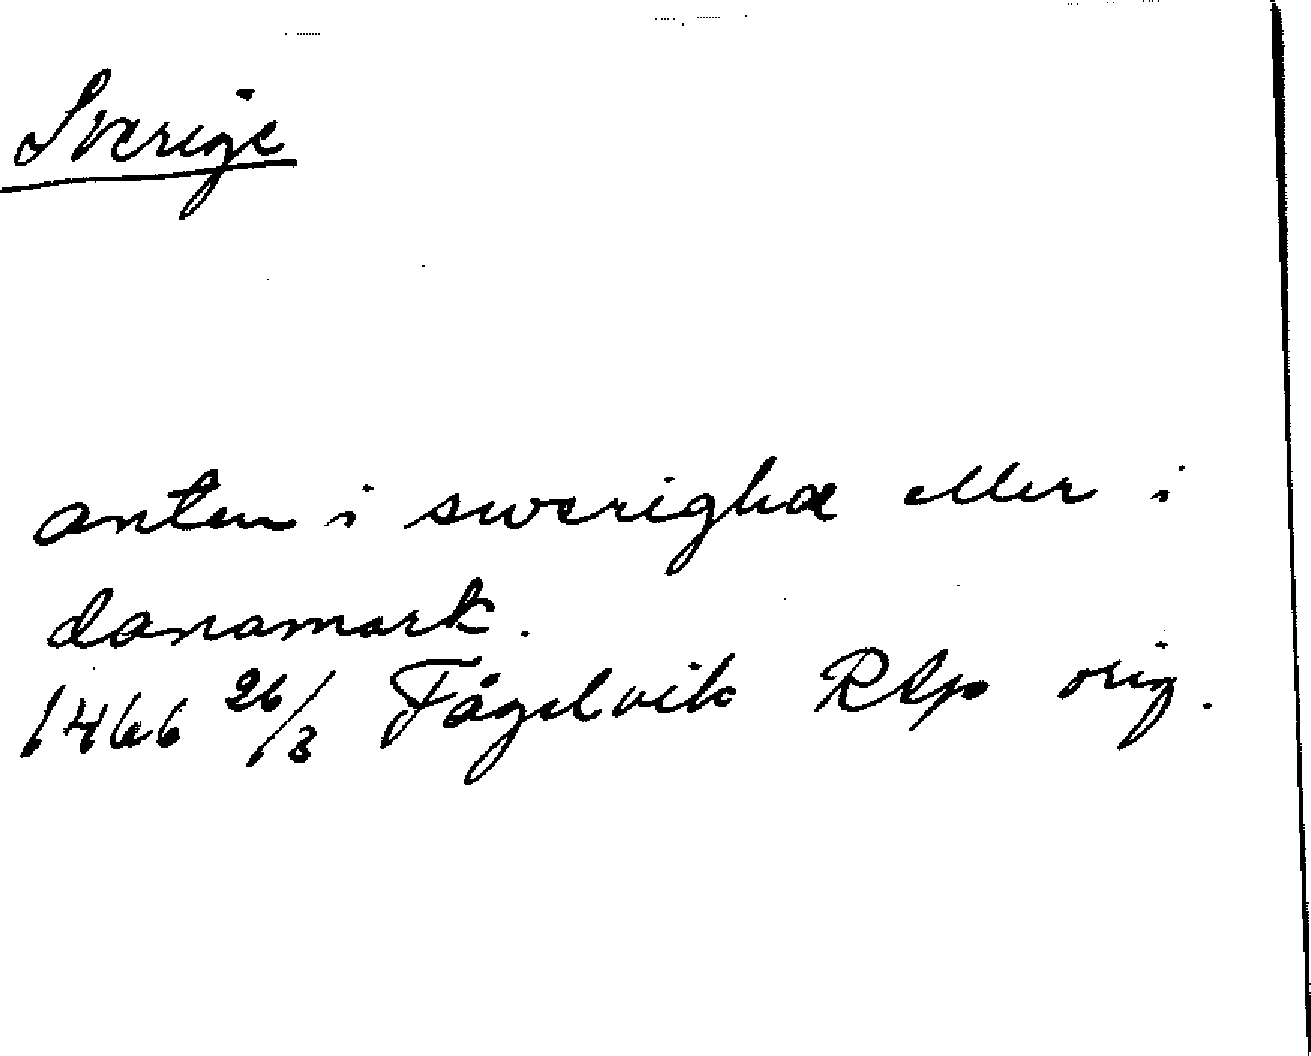 Sverige
anten i swerighæ eller i
danamark.
1466 26/3 Fågelvik RAp orig.